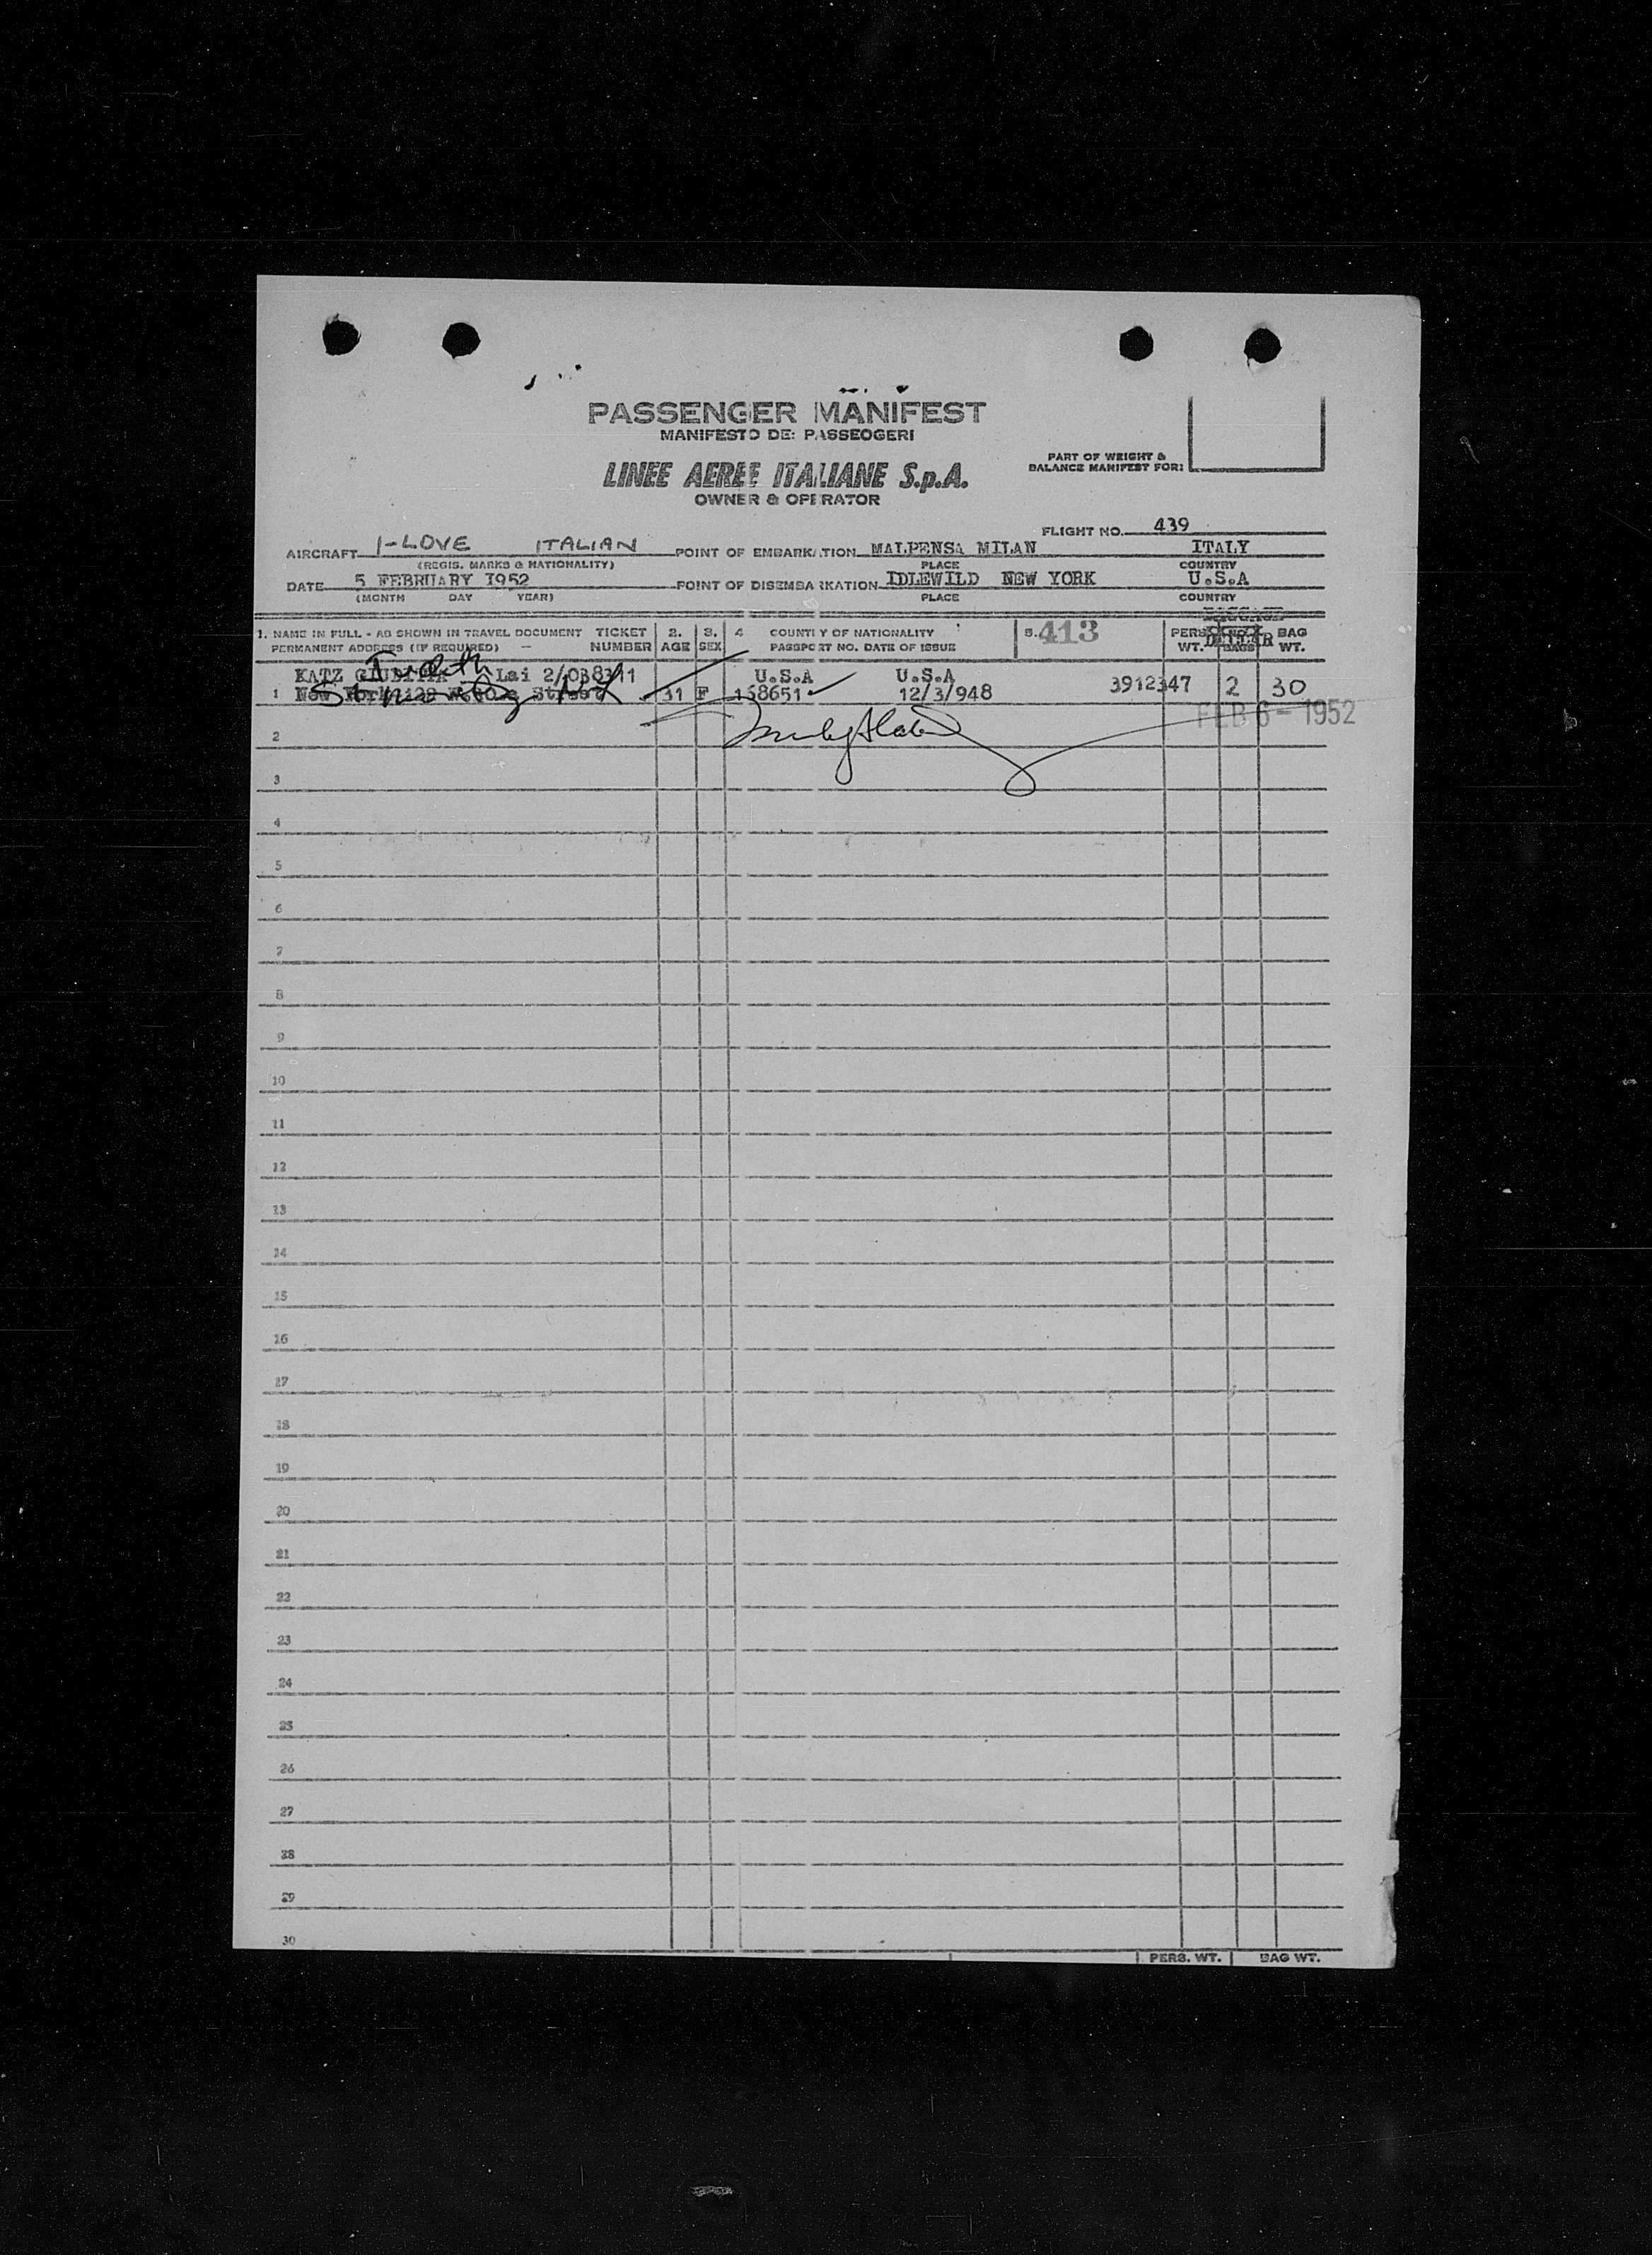 PASSENGER MANIFEST
MANIFESTO DEI PASSEOGERI
LINEE AEREE ITALIANE S.p.A.
OWNER & OPERATOR
PART OF WEIGHT &
BALANCE MANIFEST FOR:
FLIGHT NO. 439
AIRCRAFT I-LOVE ITALIAN POINT OF EMBARKATION MALPENSA MILAN ITALY
(REGIS. MARKS & NATIONALITY) PLACE COUNTRY
DATE 5 FEBRUARY I952 POINT OF DISEMBARKATION IDLEWILD NEW YORK U.S.A
(MONTH DAY YEAR) PLACE COUNTRY
1. NAME IN FULL - AS SHOWN IN TRAVEL DOCUMENT TICKET 2. 3. 4 COUNTRY OF NATIONALITY 5. 413 PERS. BAG
PERMANENT ADDRESS (IF REQUIRED) — NUMBER AGE SEX PASSPORT NO. DATE OF ISSUE WT. BAGS WT.
Judith
KATZ GIUDITTA Lai 2/038311 U.S.A U.S.A
1 New York Street 31 F 168651 12/3/948 3912347 2 30
FEB 6 - 1952
2
3
4
5
6
7
8
9
10
11
12
13
14
15
16
17
18
19
20
21
22
23
24
25
26
27
28
29
30
PERS. WT. BAG WT.